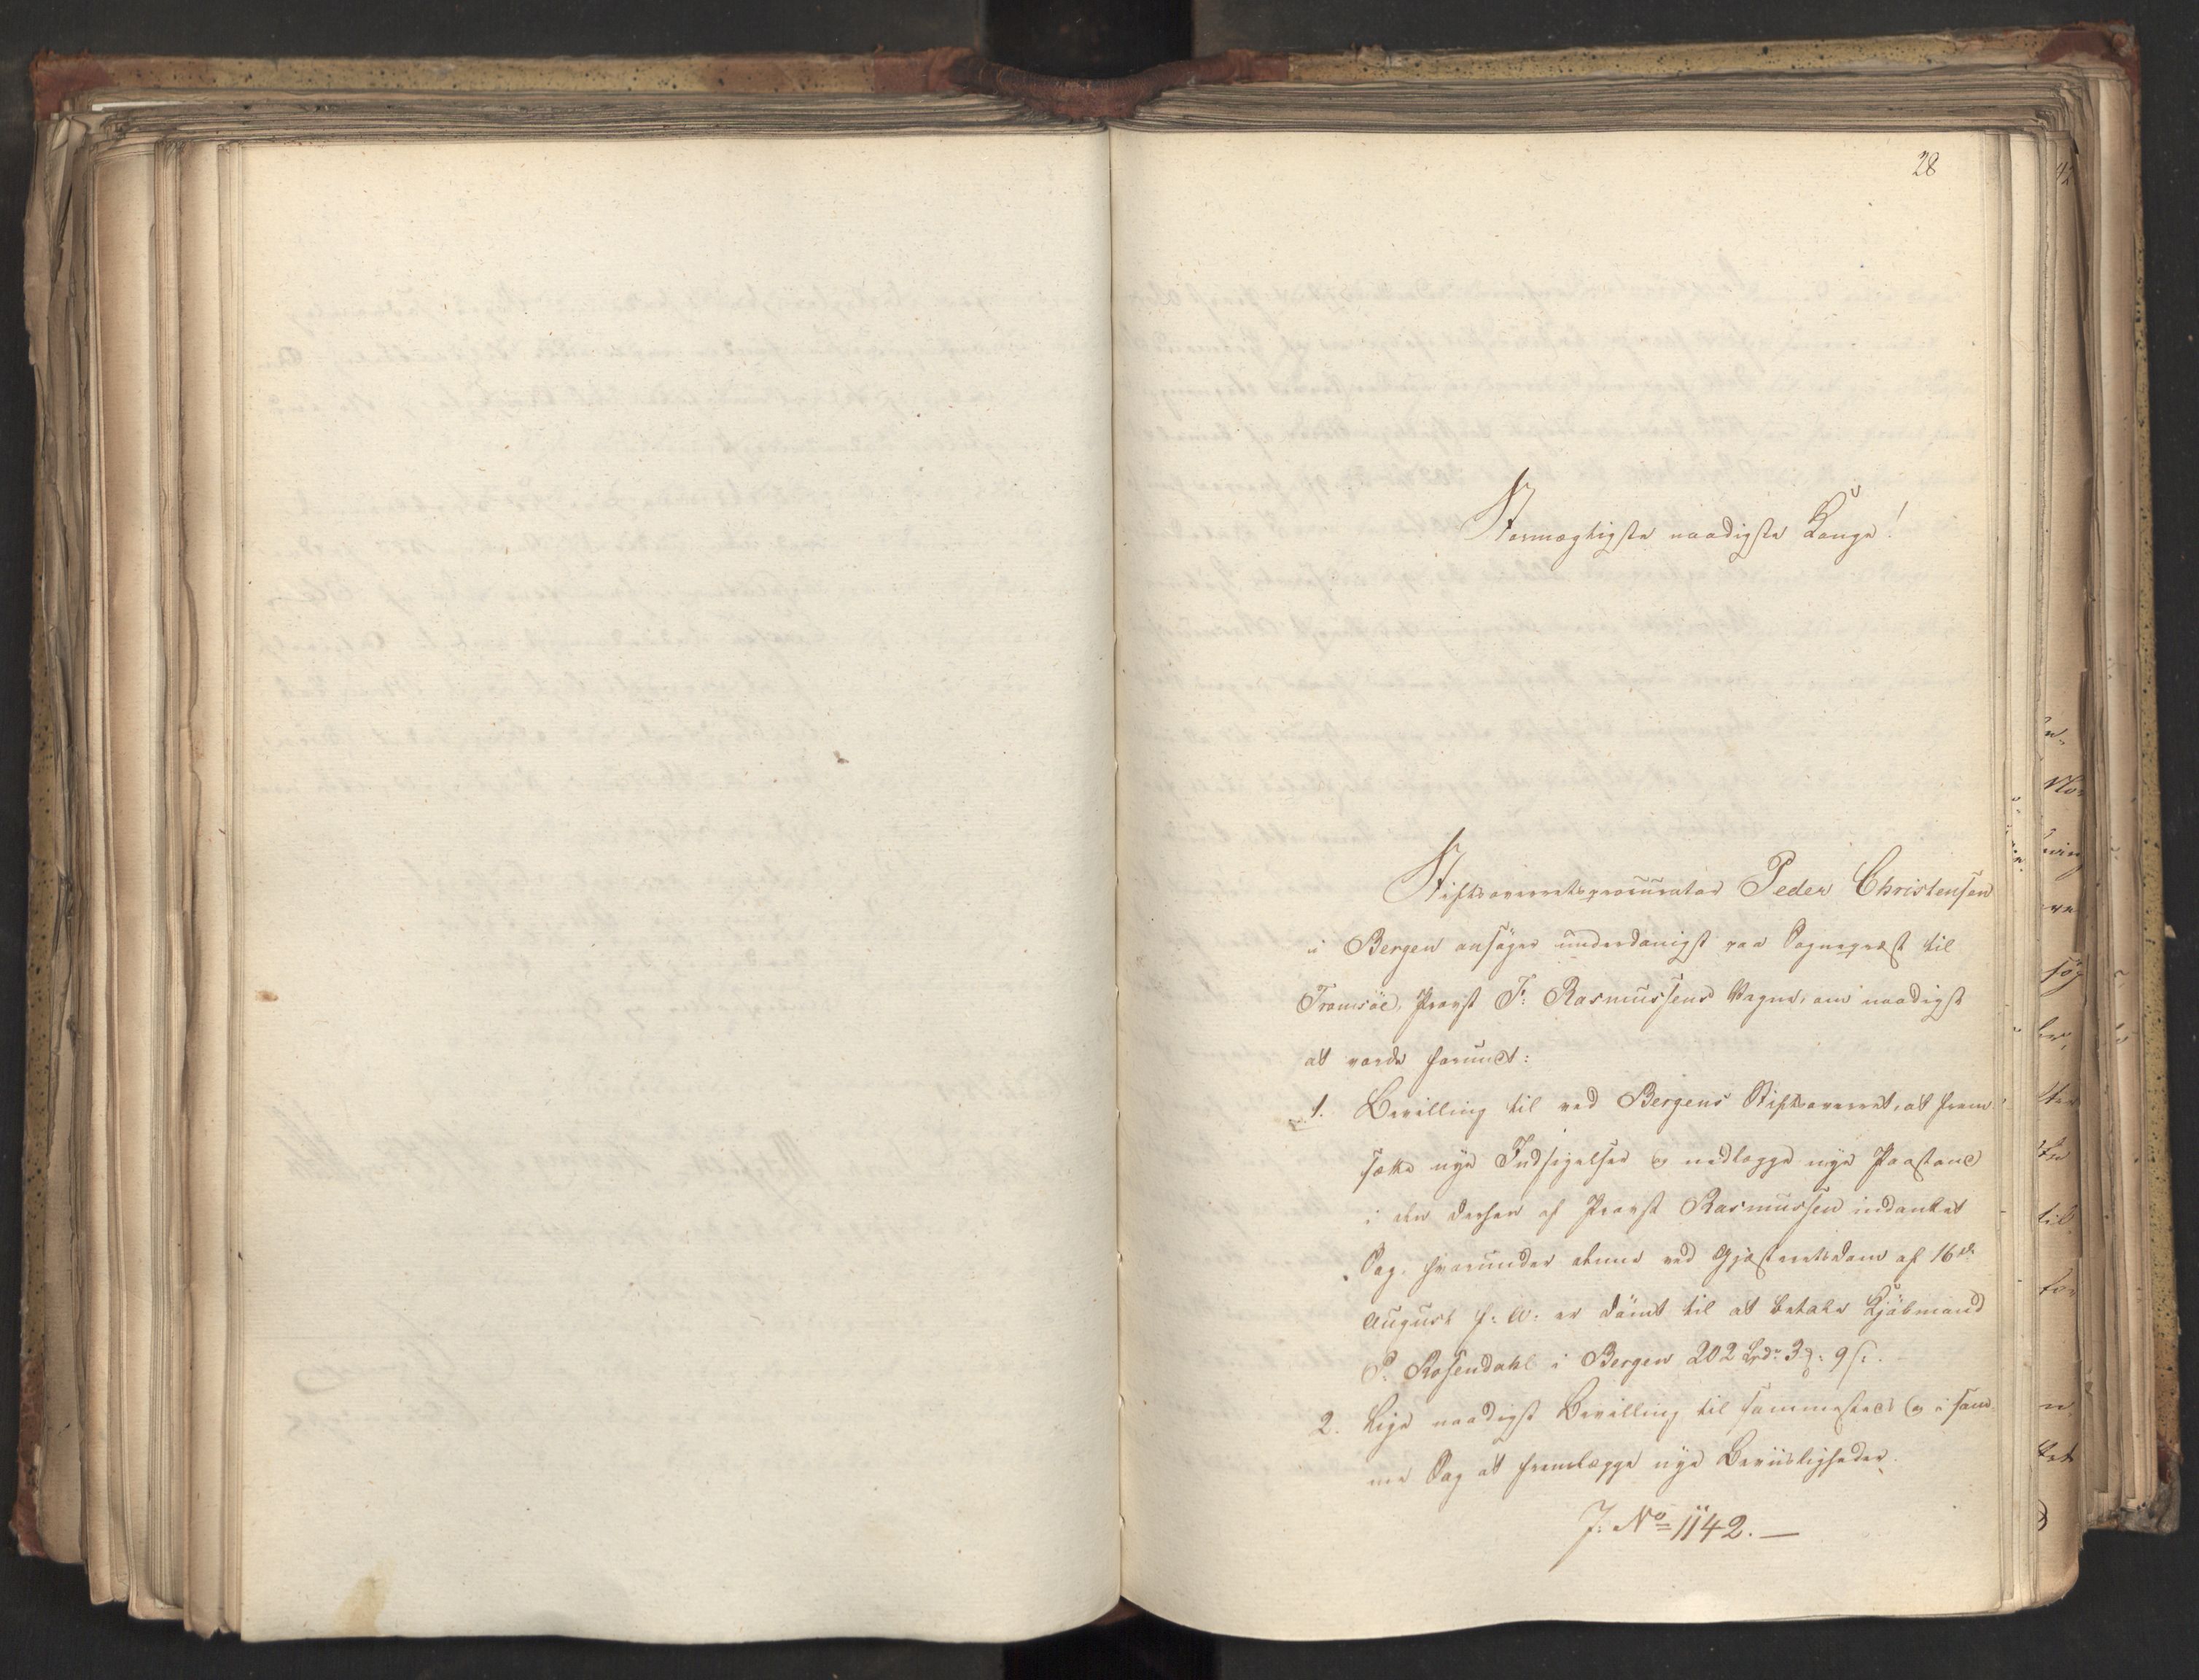 28
Stormægtigste naadigste Konge!
Stiftsoverretsprocurator Peder Christensen
i Bergen ansøger underdanigst paa Sognepræst til
Tromsöe, Provst F: Rasmussens Vegne, om naadigst
at vorde forundt:
1. Bevilling til ved Bergens Stiftsoverret, at frem¬
sætte nye Indsigelser og nedlægge nye Paastand
i den dertil af Provst Rasmussen indankede
Sag, hvorunder denne ved Gjæsteretsdom af 16de
August f: A: er dømt til at betale Kjøbmand
P. Rosendahl i Bergen 202 Spd: 3 9 s:
2. Lige naadigst Bevilling til sammesteds og i sam¬
me Sag at fremlægge nye Beviisligheder.
J: No 1142. —